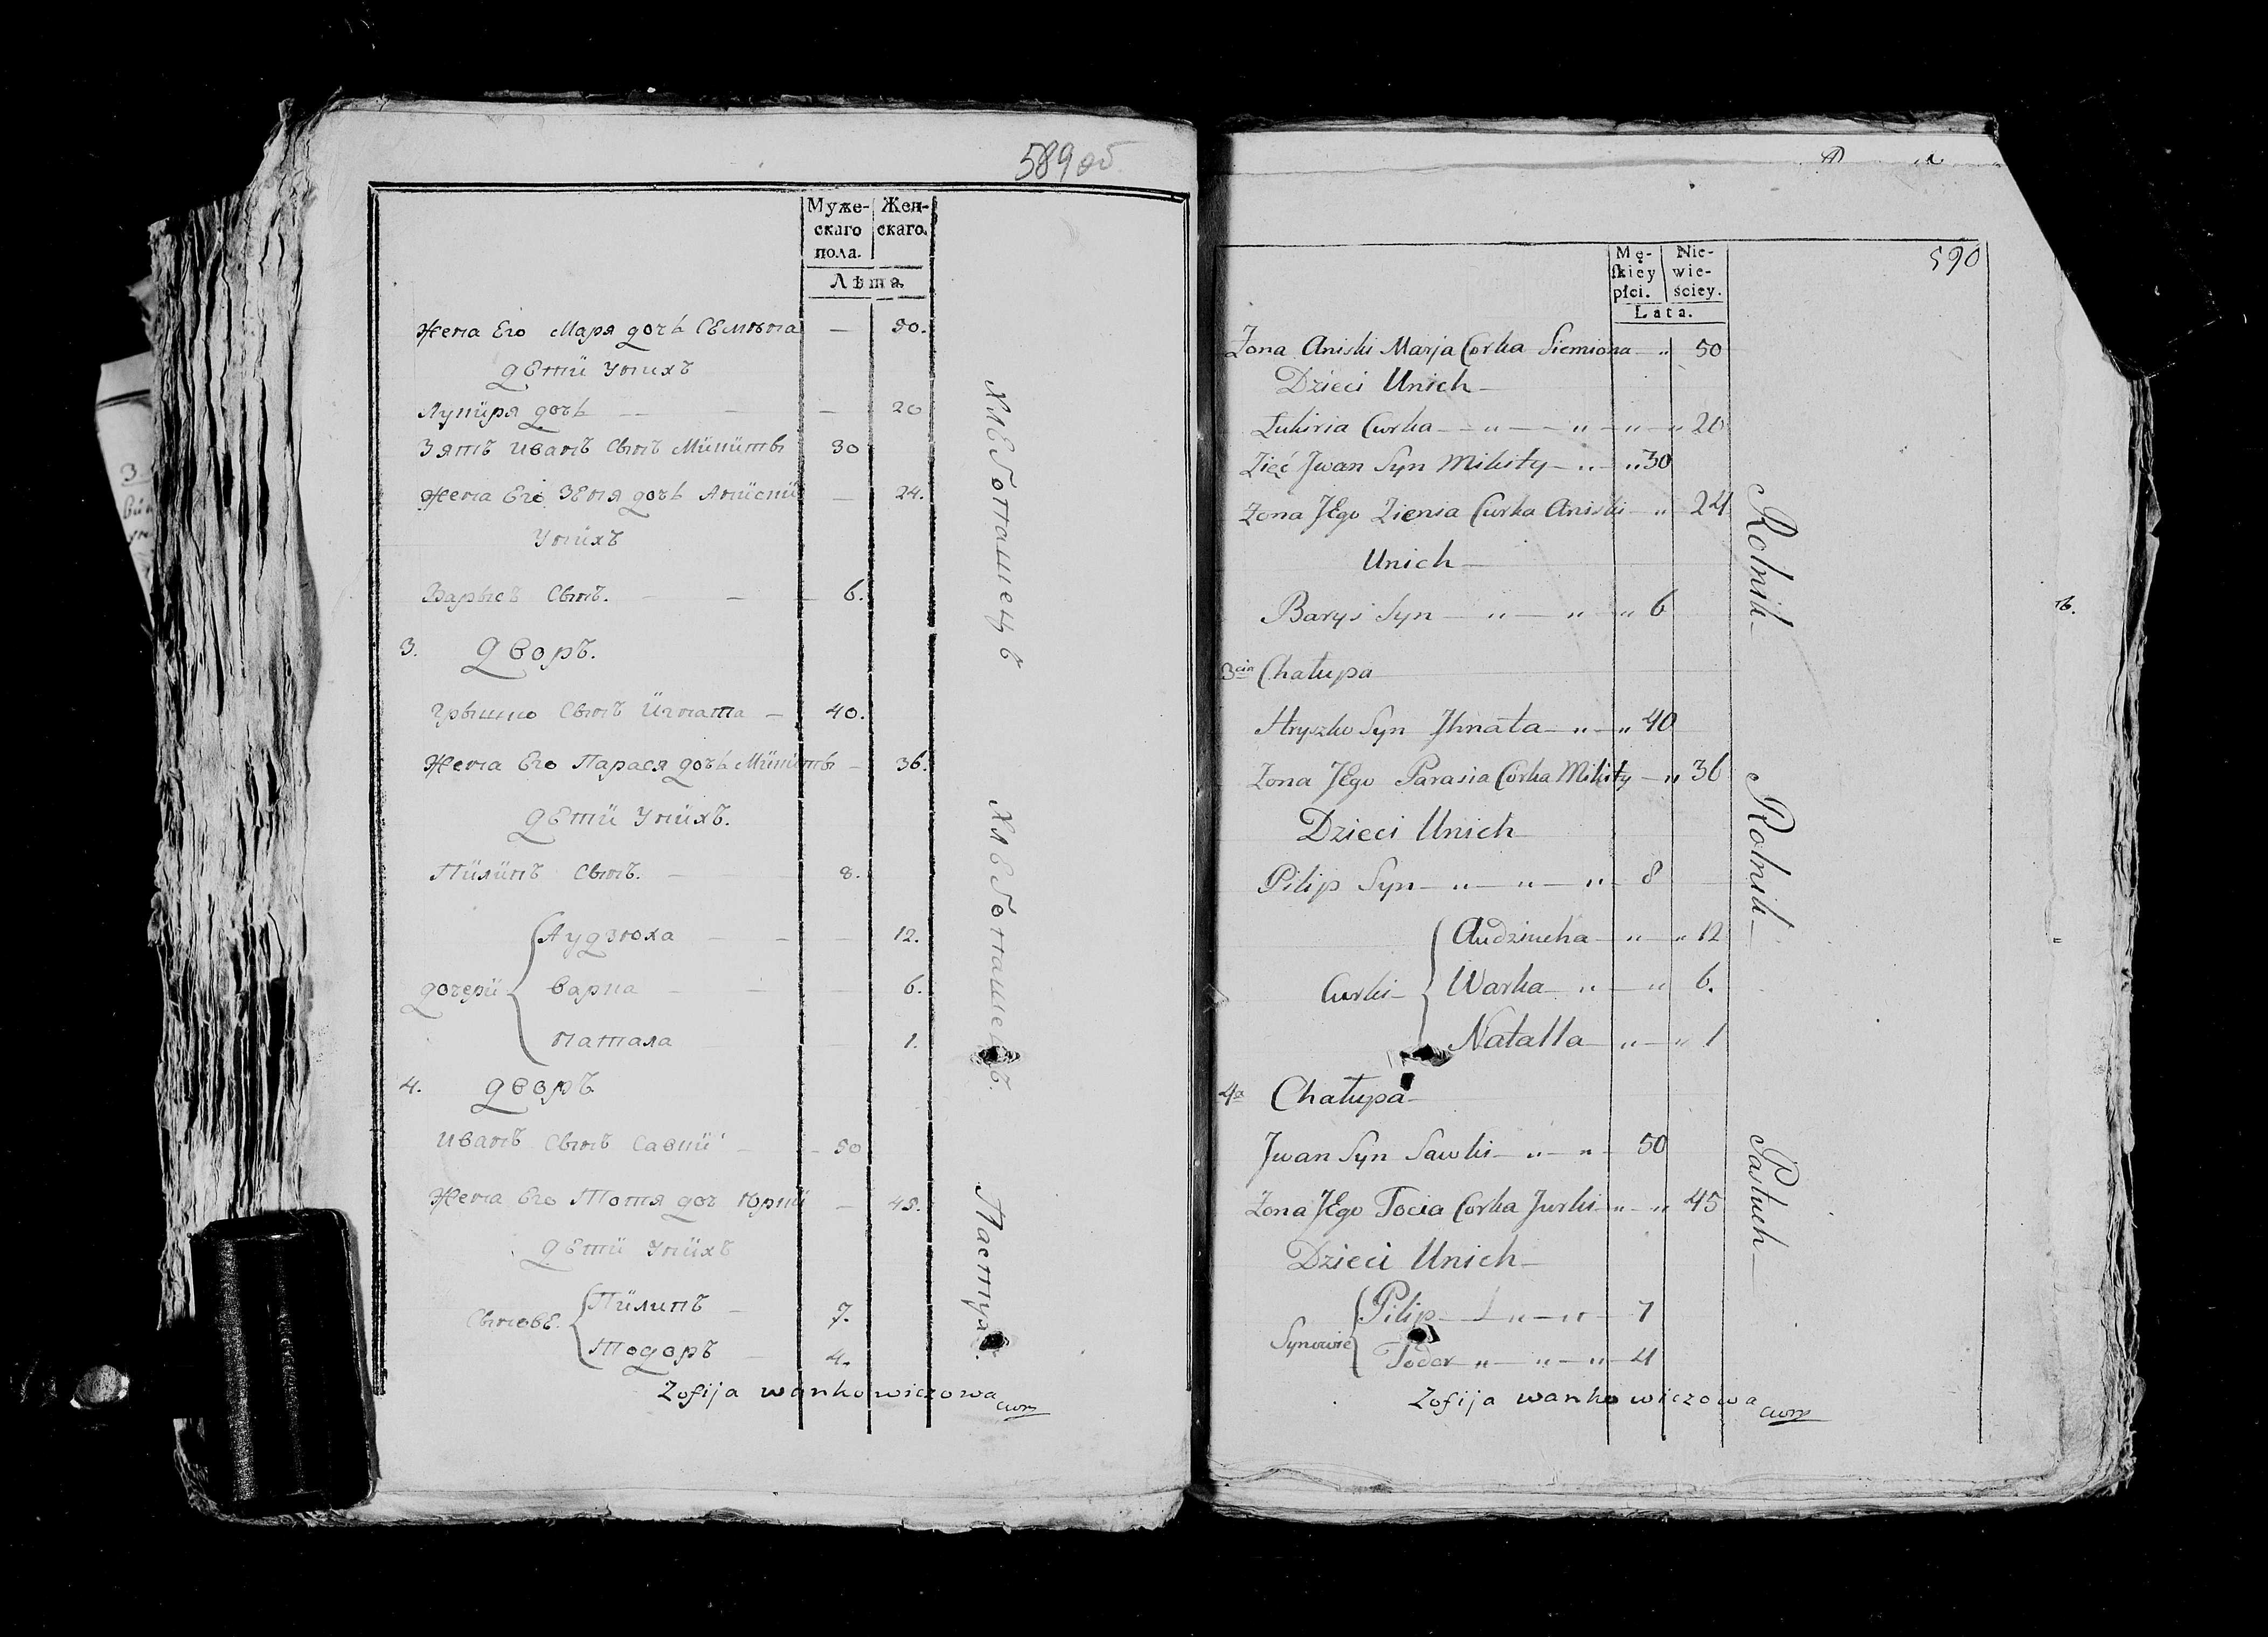 589 об
Муже-скаго пола. Жен-скаго.
Лѣта.
Жена Его Маря дочь Семѣна — 50.
дети Уних
Лукиря дочь — — — 20
Зять Иванъ Сынъ Микиты 30
Жена Его Зеня дочь Аниски — 24.
Унихъ
Барысъ Сынъ. — — 6.
Хлебопашецъ
3. дворъ.
Грышко Сынъ Игната — 40.
Жена Его Парася дочь Микиты — 36.
дети Унихъ.
Пилипъ Сынъ. — 8.
дочери
Аудзюха — — — 12.
Варка — — — 6.
Натала — 1.
Хлебопашецъ.
4. дворъ
Иванъ Сынъ Савки — 50
Жена Его Тотя доч Юрки — 45.
дети Унихъ
Сынове.
Пилипъ — 7.
Тодоръ — 4.
Пастух.
Zofija wankowiczowa
590
Mę-skiey płci. Nie-wie-ściey.
Lata.
Zona Aniski Marja Corka Siemiona — " 50
Dzieci Unich —
Lukiria Curka — " — " — " — " 20
Zięć Jwan Syn Mikity — " — " 30
Zona JEgo Zienia Curka Aniski — " — 24
Unich —
Barys Syn — " — " — " 6
Rolnik —
3cia Chałupa
Hryszko Syn Jhnata — " — " 40
Zona JEgo Parasia Corka Mikity — " 36
Dzieci Unich
Pilip Syn — " — " — " — 8
Curki —
Audziucha — " — " 12
Warka — " — " 6.
Natalla — " — " 1
Rolnik —
4a Chałupa —
Jwan Syn Sawki — " — " — 50
Zona JEgo Tocia Corka Jurki " — " 45
Dzieci Unich —
Synowie
Pilip — " — " — 7
Todor " — " — " — 4
Pastuch —
Zofija wankowiczowa